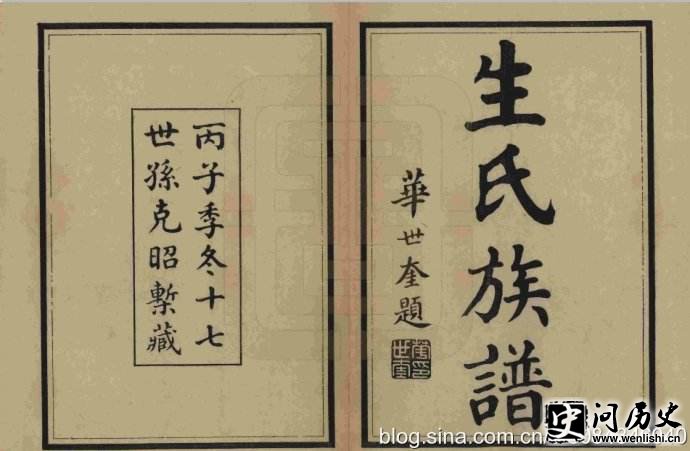 生氏族譜
華世奎題
丙子季冬十七
世孫克昭槧藏
问历史
www.wenlishi.cn
blog.sina.com.cn